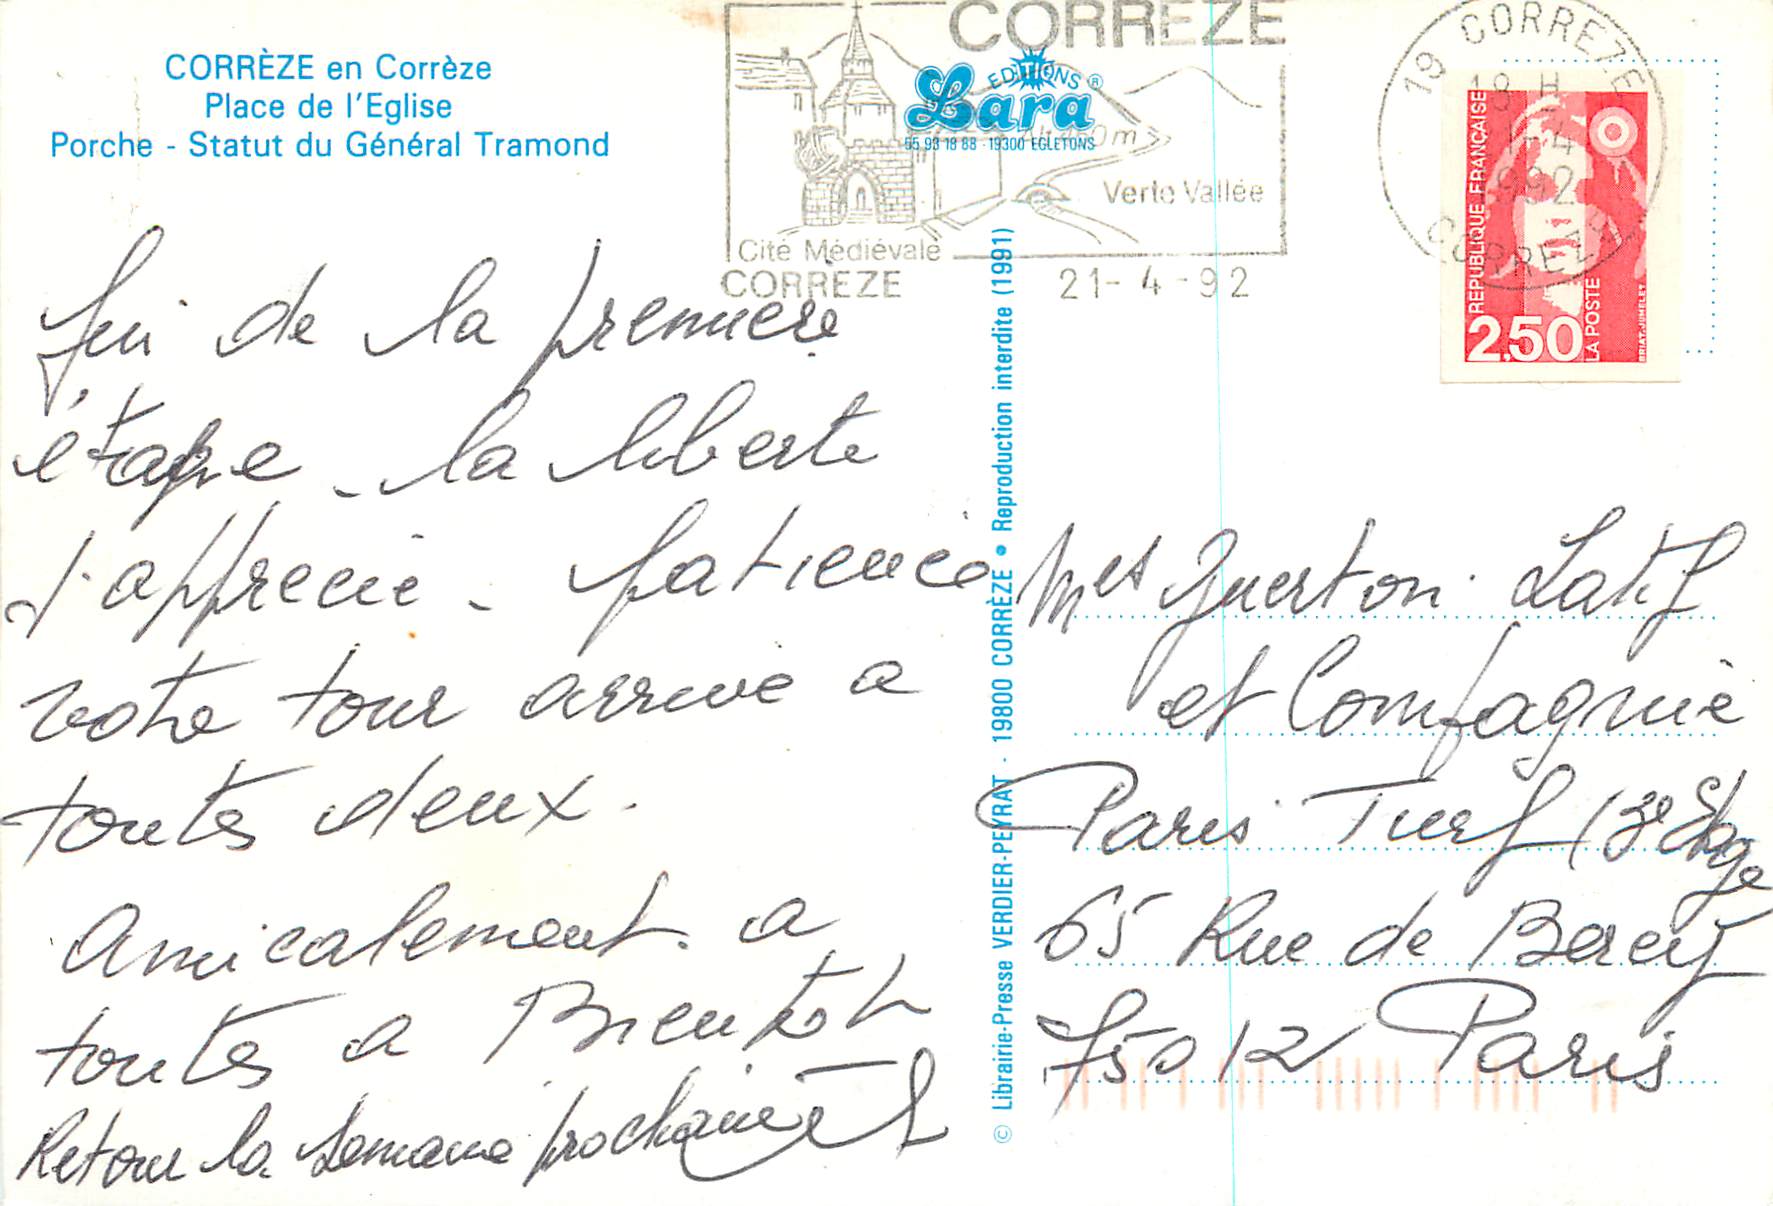 CORRÈZE en Corrèze
Place de l'Eglise
Porche - Statut du Général Tramond
CORRÈZE
EDITIONS ®
Lara
55 93 18 88 - 19300 EGLETONS
Alt 460 m
Verte Vallée
Cité Médiévale
CORRÈZE
21-4-92
19 CORREZE
18 H
21-4
1992
CORREZE
RÉPUBLIQUE FRANÇAISE
2,50
LA POSTE
BRIAT-JUMELET
fin de la première
étape - la liberte
j'apprecie - patience
votre tour arrive a
toutes deux.
Amicalement. a
toutes a Bientot
Retour la semaine prochaine
© Librairie-Presse VERDIER-PEYRAT - 19800 CORRÈZE • Reproduction interdite (1991)
Mes Querton. Latif
et Compagnie
Paris Turf (3e Etage
65 Rue de Bercy
75012 Paris